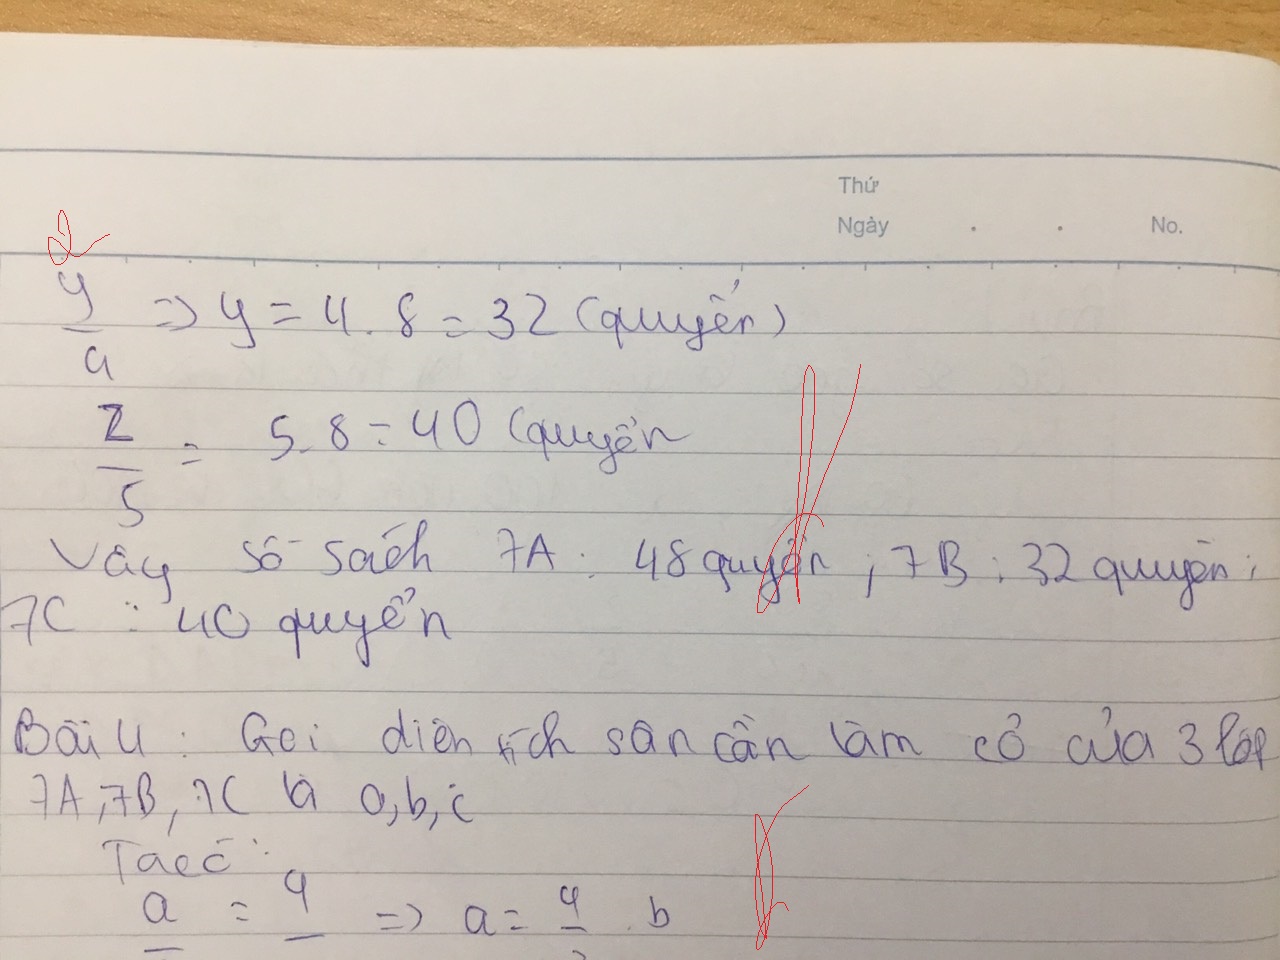 Thứ
Ngày . . No.
y/4 => y = 4. 8 = 32 (quyển)
z/5 = 5. 8 = 40 (quyển
Vậy số sách 7A : 48 quyển ; 7B : 32 quyển ;
7C : 40 quyển
Bài 4 : Gọi diện tích sân cần làm cỏ của 3 lớp
7A, 7B, 7C là a, b, c
Ta có :
a = 4 => a = 4 . b